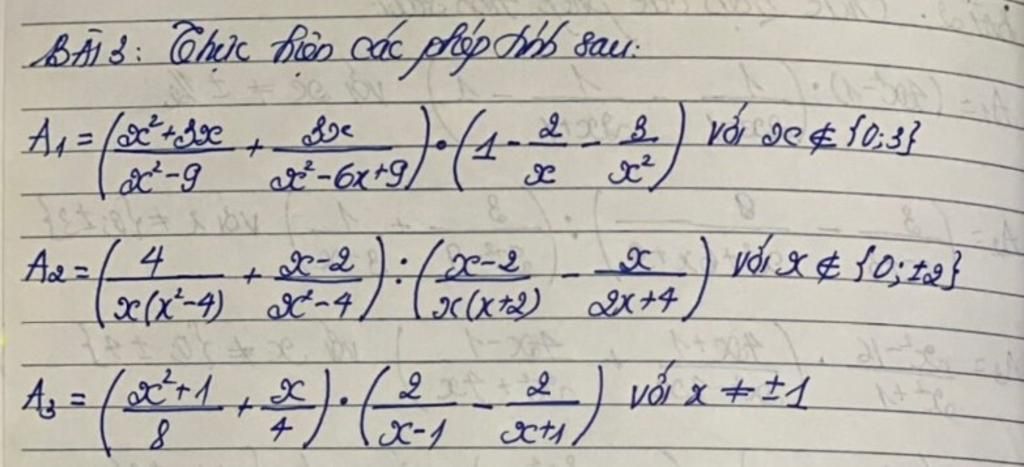 BÀI 3: Thực hiện các phép tính sau:
A₁ = (x²+3x / x²-9 + 3x / x²-6x+9) · (1 - 2/x - 3/x²) với x ∉ {0;3}
A₂ = (4 / x(x²-4) + x-2 / x²-4) : (x-2 / x(x+2) - x / 2x+4) với x ∉ {0;±2}
A₃ = (x²+1 / 8 + x/4) · (2 / x-1 - 2 / x+1) với x ≠ ±1